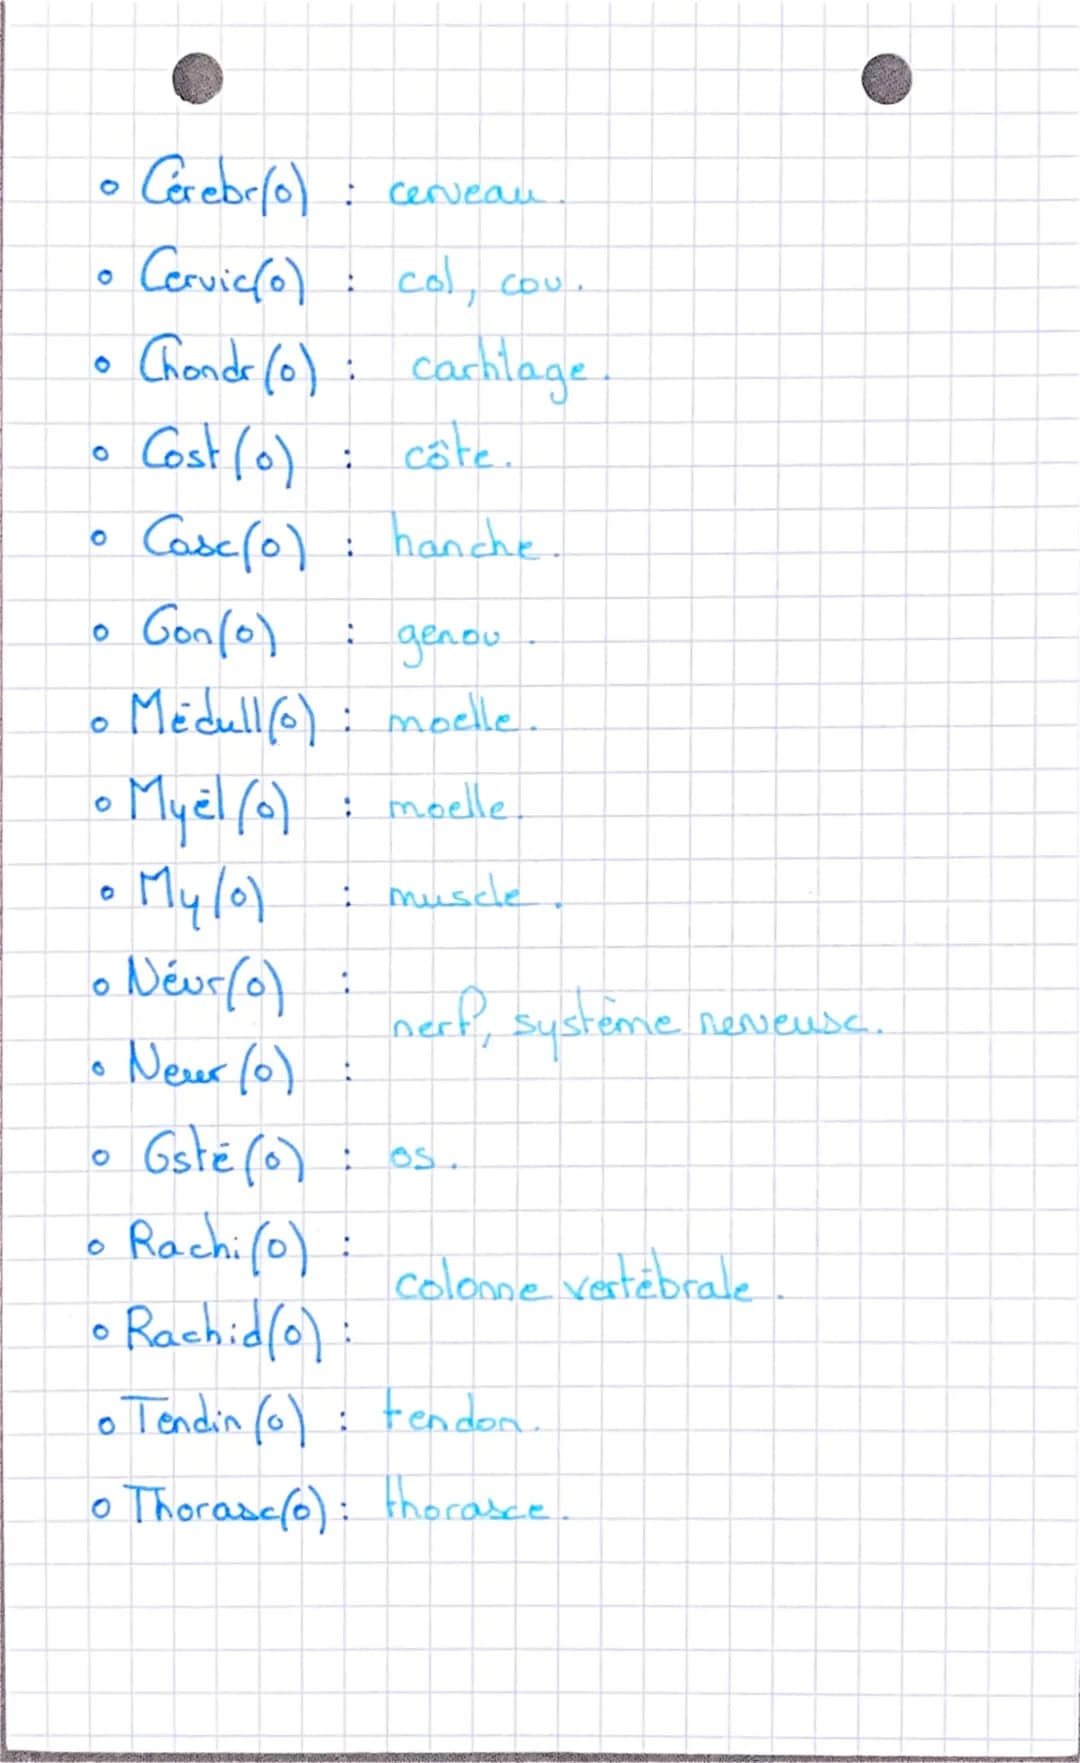 • Cérebr(o) : cerveau.
• Cervic(o) : col, cou.
• Chondr(o) : cartilage.
• Cost(o) : côte.
• Cox(o) : hanche.
• Gon(o) : genou.
• Médull(o) : moelle.
• Myél(o) : moelle.
• My(o) : muscle.
• Névr(o) :
nerf, système nerveux.
• Neur(o) :
• Osté(o) : os.
• Rachi(o) :
colonne vertébrale.
• Rachid(o) :
• Tendin(o) : tendon.
• Thorax(o) : thoraxe.